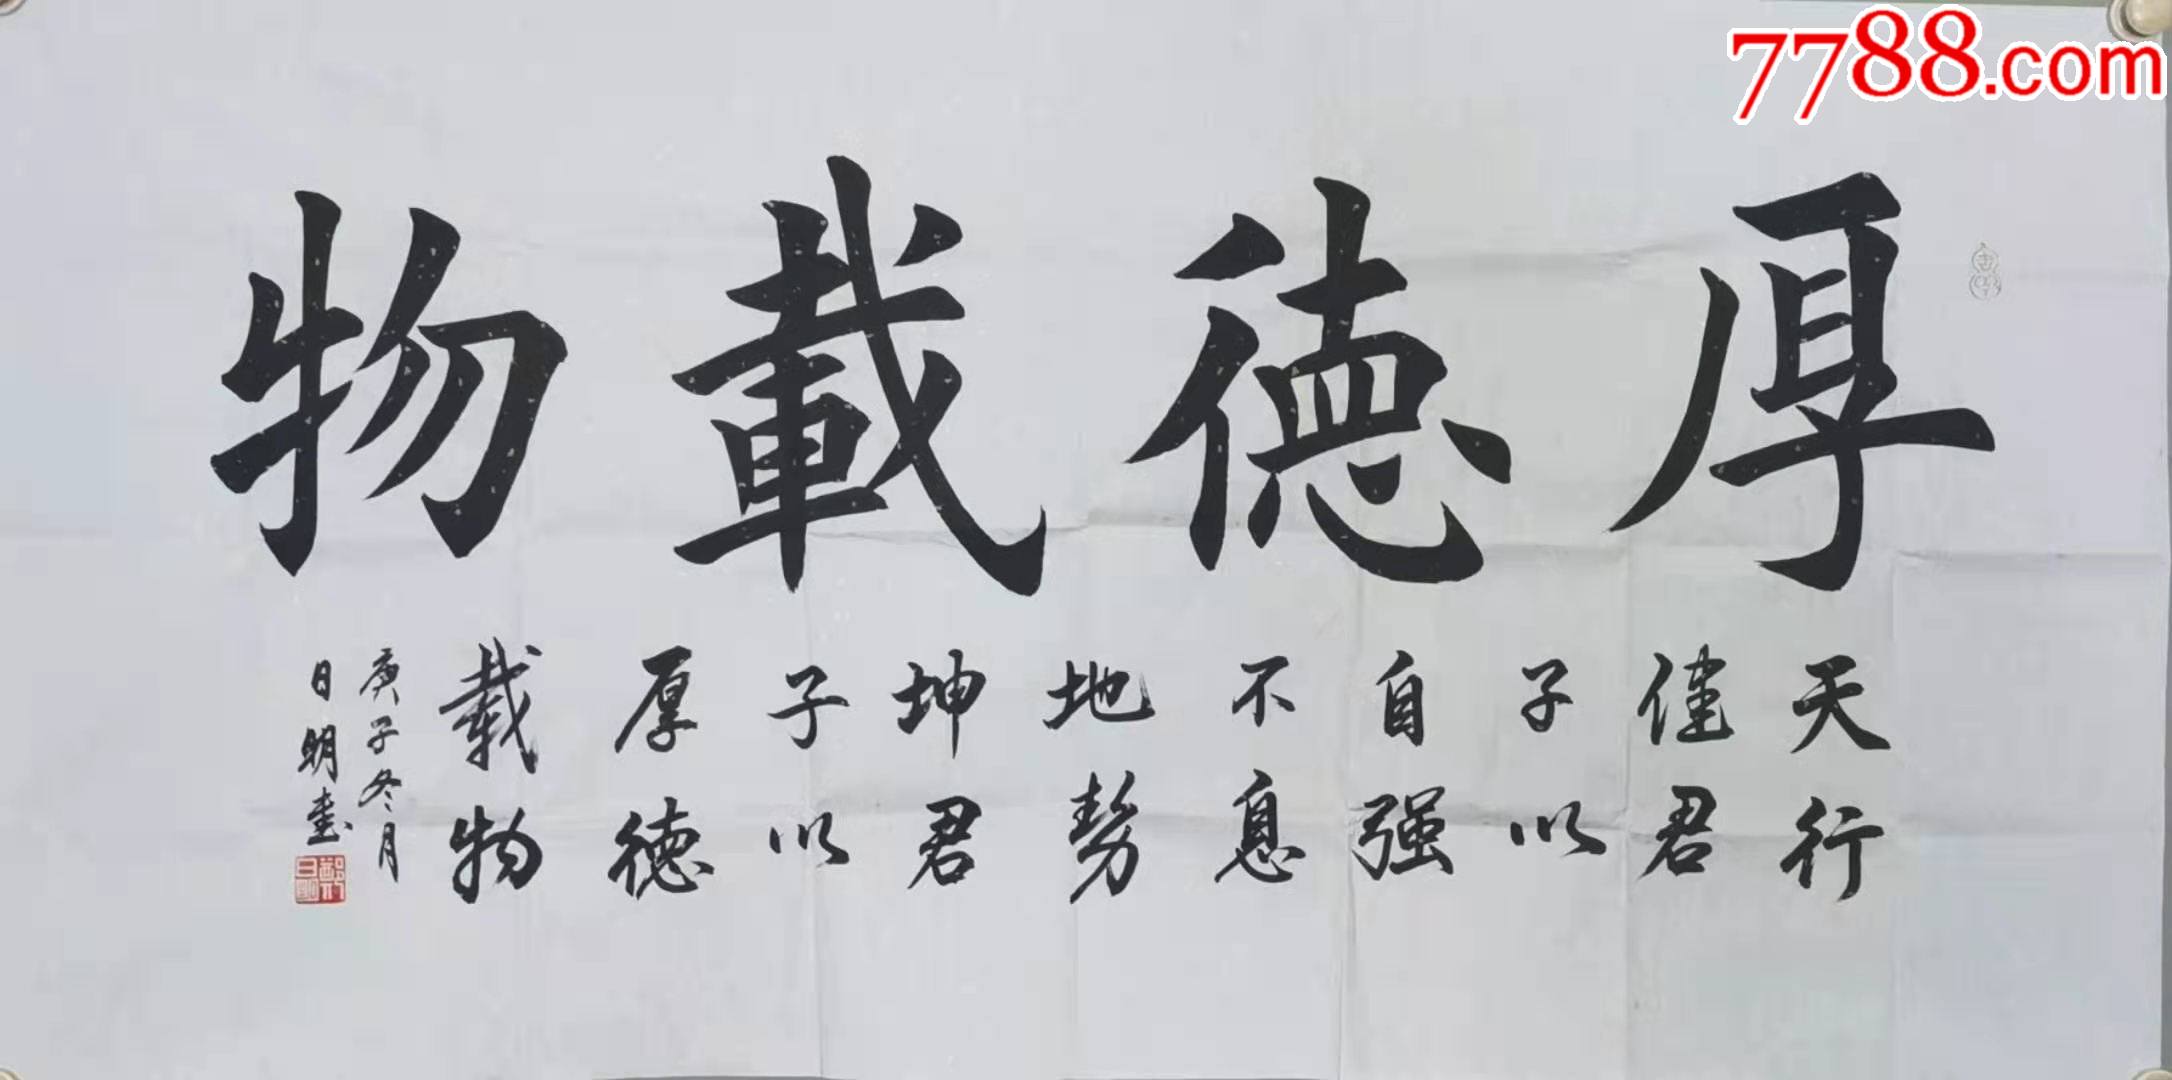 7788.com
厚德載物
天行
健君
子以
自强
不息
地势
坤君
子以
厚德
载物
庚子冬月
日明书